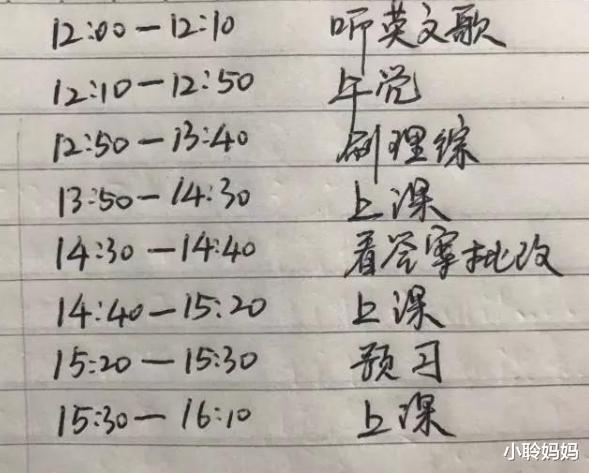 12:00—12:10 听英文歌
12:10—12:50 午觉
12:50—13:40 刷理综
13:50—14:30 上课
14:30—14:40 看答案批改
14:40—15:20 上课
15:20—15:30 预习
15:30—16:10 上课
小聆妈妈